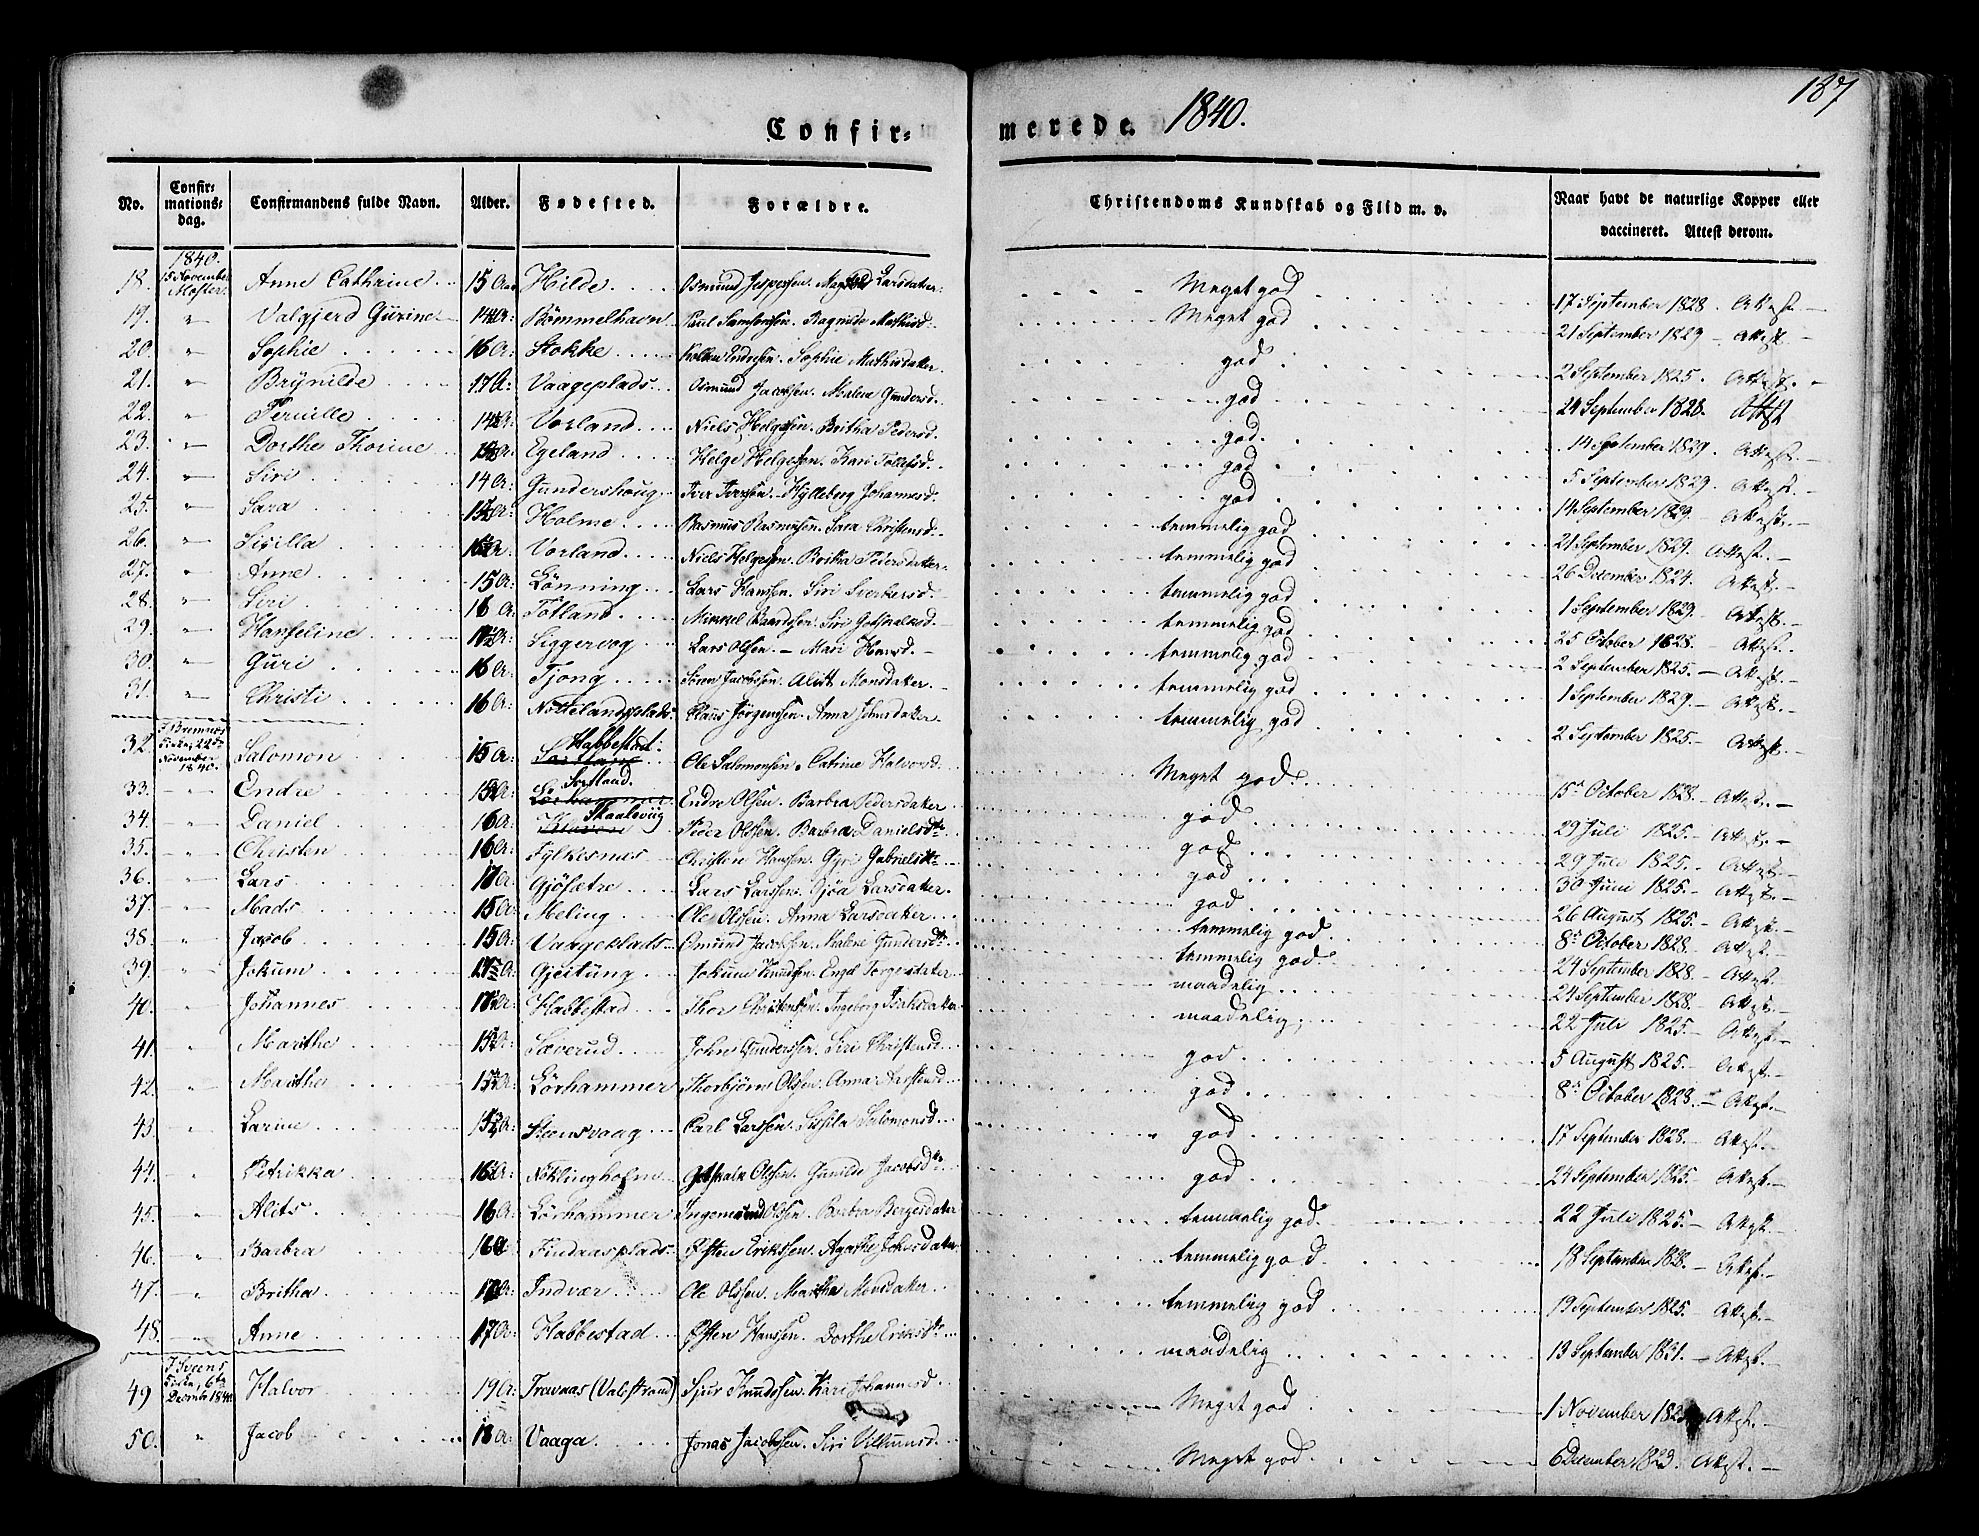 187
Confirmerede. 1840.
No. Confirmationsdag. Confirmandens fulde Navn. Alder. Fødested. Forældre. Christendoms Kundskab og Flid m. v. Naar havt de naturlige Kopper eller vaccineret. Attest derom.
1840.
18. 15 November Moster. Anne Cathrine 15 Aar Hilde Osmund Jespersen. Larsdater. Meget god 17 September 1828. Attest
19. " Valgjerd Gurine 14 A: Bömmelhavn Paul Samsonsen. Ragnilde Mathisd: Meget god 21 September 1829 Attest
20. " Sophie 16 A: Stokke Endresen. Sophie Mathisdater. god 2 September 1825. Attest.
21. " Brynilde 17 A: Vaageplads Osmund Jacobsen. Malene Gundersd. god 24 September 1828. Attest
22. " Pernille 14 A: Vorland Niels Helgesen. Britha Pedersd. god 14 September 1829. Attest.
23. " Dorthe Thorine 15 A: Egeland Helge Helgesen. Kari Tollefsd. god 5 September 1829. Attest.
24. " Siri 14 A: Gundershoug Iver Iversen. Hylleborg Johannesd. god 14 September 1829. Attest.
25. " Sara A: Holme Rasmus Rasmussen. Sara Christensd. temmelig god 21 September 1829. Attest.
26. " Sisilla 16 A: Vorland Niels Helgesen. Britha Pedersdater temmelig god 26 December 1824. Attest.
27. " Anne 15 A: Lönning Lars Hansen. Siri Sverkersd. temmelig god 1 September 1829. Attest.
28. " Siri 16 A: Totland Mikkel Baardsen. Siri Gotskalksd. temmelig god 25 October 1828. Attest.
29. " Hanseline 17 A: Siggervog Lars Olsen. Mari Hansd. temmelig god 2 September 1825. Attest.
30. " Guri 16 A: Tjong Sören Jacobsen. Alitt Monsdater. temmelig god 1 September 1829. Attest.
31. " Christi 16 A: Nottelandsplads Claus Jörgensen. Anna Johnsdater. temmelig god 2 September 1825. Attest.
32. I Bremnes Kirke, 22de November 1840. Salomon 15 A: Sortland Habbestad. Ole Salomonsen. Catrine Halvord. Meget god. 15de October 1828. Attest.
33. " Endre 15 A: Lörhammer Sortland. Endre Olsen. Barbra Pedersdater god 29 Juli 1825. Attest.
34. " Daniel 16 A: Skaalevig Peder Olsen. Barbra Danielsdtr god 29 Juli 1825. Attest.
35. " Christen 16 A: Fylkesnes Christen Hansen. Gyri Gabrielsdtr god 30 Juni 1825. Attest.
36. " Lars 17 A: Gjösætre Lars Larsen. Gjöa Larsdater. god 26 August 1825. Attest.
37. " Mads 15 A: Meling Ole Olsen. Anna Larsdater temmelig god 8de October 1828. Attest.
38. " Jacob 15 A: Vaageplads Osmund Jacobsen. Malene Gundersdtr temmelig god 24 September 1828. Attest.
39. " Jokum 17 A: Gjeitung Jokum Knudsen. Engel Torgersdater maadelig 24 September 1828. Attest.
40. " Johannes A: Habbestad Thor Christensen. Ingeborg Isaksdater maadelig 22 Juli 1825. Attest.
41. " Marithe 15 A: Sæverud John Gundersen. Siri Christensd. god 5 August 1825. Attest.
42. " Marthe 15 A: Lörhammer Thorbjörn Olsen. Anna Aarstensd. god 8de October 1828. Attest.
43. " Larine 15 A: Steensvaag Carl Larsen. Sissila Salomonsd. god 17 September 1828. Attest.
44. " Petrikka 16 A: Nöklingholm Gotskalk Olsen. Gunilde Jacobsdtr god 24 September 1825. Attest.
45. " Alits 16 A: Lörhammer Ingemund Olsen. Barbra Bergesdater temmelig god 22 Juli 1825. Attest.
46. " Barbra 16 A Findaasplads Østen Eriksen. Agathe Johnsdater temmelig god 18 September 1828. Attest.
47. " Britha 17 A: Indvær Ole Olsen. Martha Monsdater temmelig god 19 September 1825. Attest.
48. " Anne 17 A: Habbestad Østen Hansen. Dorthe Eriksdtr maadelig 13 September 1831. Attest.
49 I Sveens Kirke, 6te December 1840. Halvor 19 A: Travaas (Valestrand) Sjur Knudsen. Kari Johannesd. Meget god 1 November Attest.
50. " Jacob 18 A: Vaaga. Jonas Jacobsen. Siri Vilhumsd. Meget god 6 December 1823. Attest.